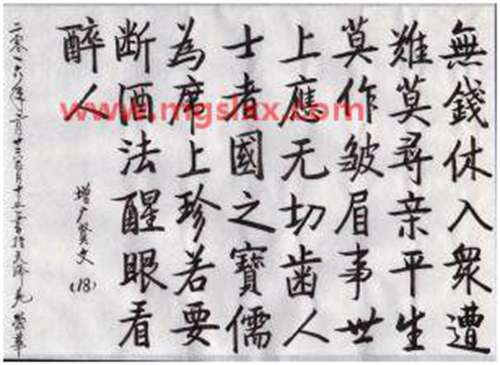 無錢休入衆遭
難莫尋亲平生
莫作皱眉事世
上應无切齒人
士者國之寶儒
為席上珍若要
断酒法醒眼看
醉人
增广贤文
(18)
二零一六年
www.mgslxx.com